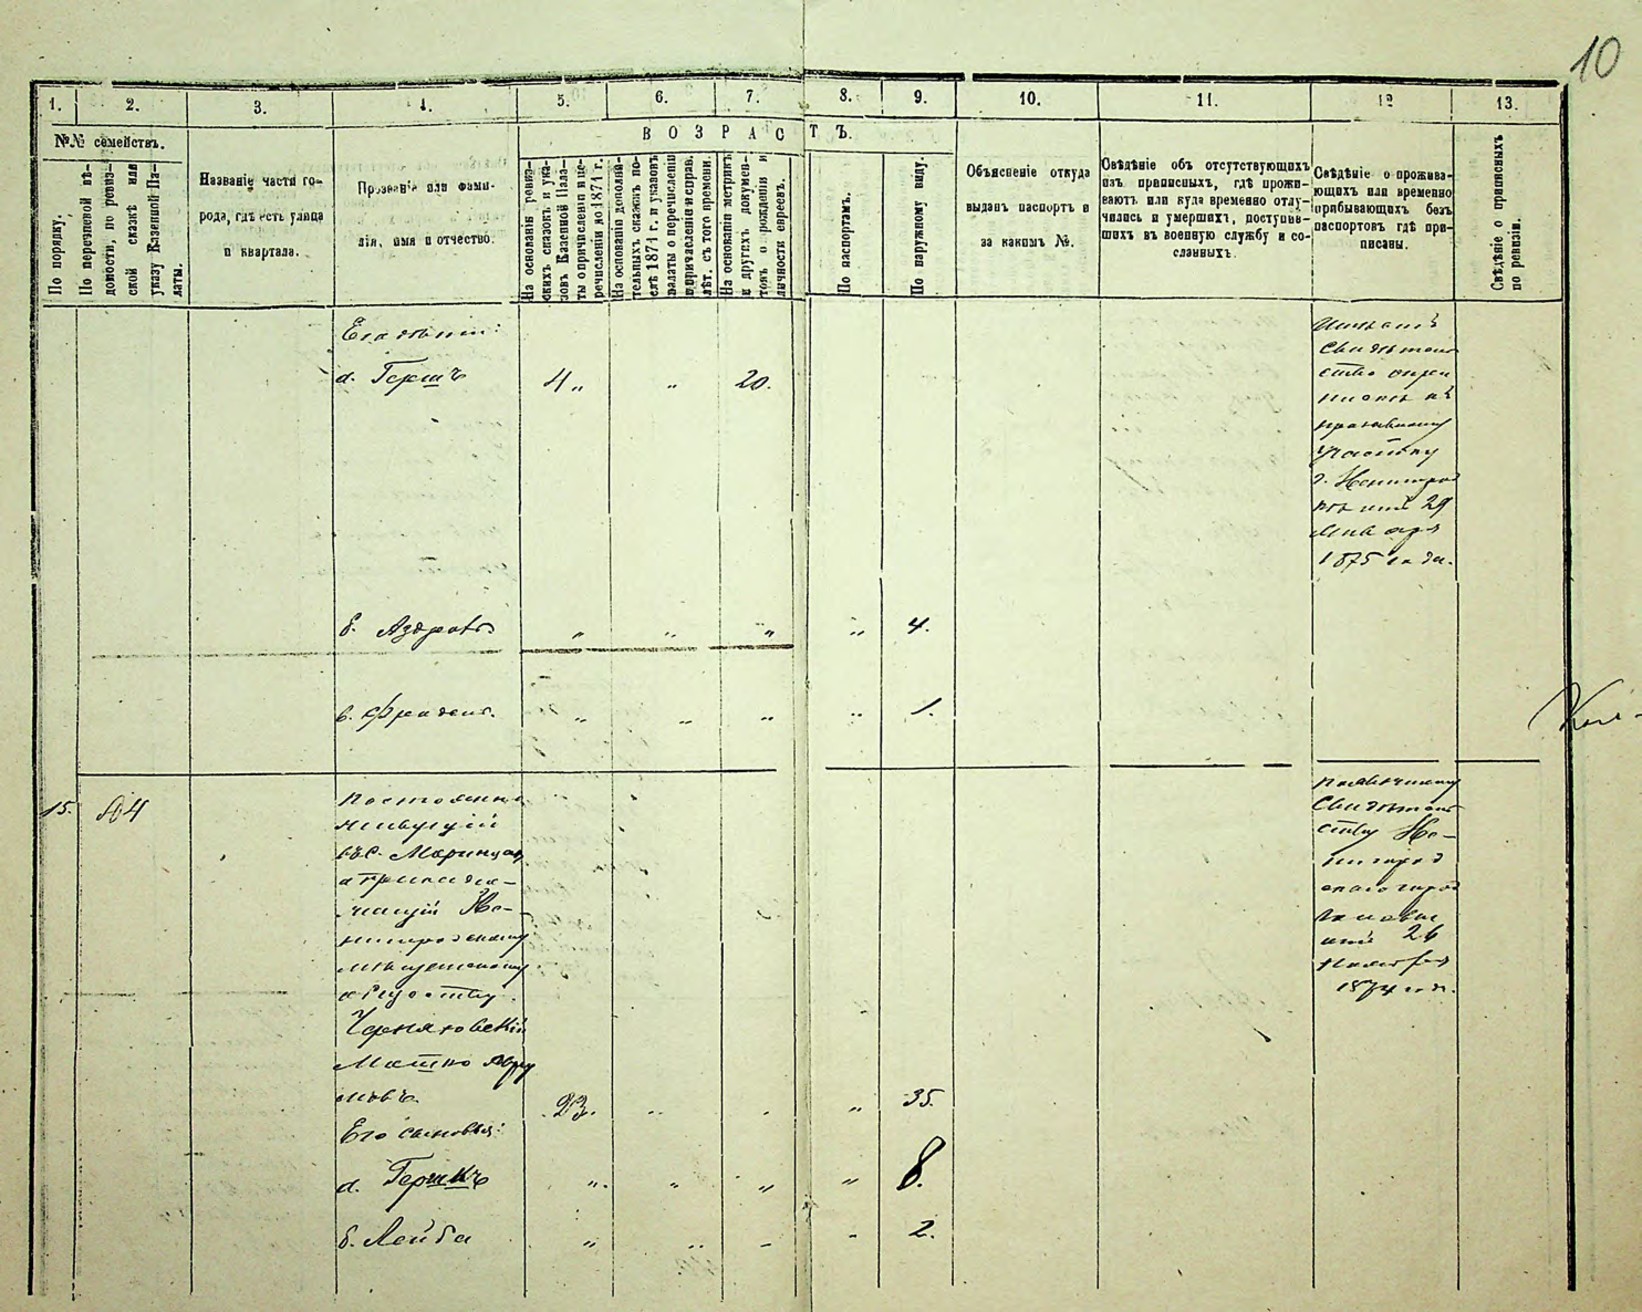 10
1. 2. 3. 4. 5. 6. 7. 8. 9. 10. 11. 12 13.
№№ семействъ.
По порядку.
По перечневой вѣ-
домости, по ревиз-
ской сказкѣ или
указу Казенной Па-
латы.
Названіе части го-
рода, гдѣ есть улица
и квартала.
Прозваніе или фами-
лія, имя и отчество.
ВОЗРАСТЪ.
На основаніи ревиз-
скихъ сказокъ и ука-
зовъ Казенной Пала-
ты о причисленіи и пе-
речисленіи до 1874 г.
На основаніи дополни-
тельныхъ сказокъ по-
слѣ 1874 г. и указовъ
палаты о перечисленіи
и причисленіи и справ.
лѣт. съ того времени.
На основаніи метрикъ
и другихъ докумен-
товъ о рожденіи и
личности евреевъ.
По паспортамъ.
По наружному виду.
Объясненіе откуда
выданъ паспортъ и
за какимъ №.
Свѣдѣніе объ отсутствующихъ
изъ приписныхъ, гдѣ прожи-
ваютъ или куда временно отлу-
чились и умершихъ, поступив-
шихъ въ военную службу и со-
сланныхъ.
Свѣдѣніе о прожива-
ющихъ или временно
прибывающихъ безъ
паспортовъ гдѣ при-
писаны.
Свѣдѣніе о приписныхъ
по ревизіи.
Его дѣти:
а. Гершъ 4 „ „ 20.
Имѣетъ
Свидѣтель
ство о при
пискѣ къ
призывному
участку
г. Звенигород
29
Января
1875 года.
б. „ „ „ „ 4.
в. „ „ „ „ 1.
15. 44
Постоянно
живущій
въ с. Моринцах
а принадле-
жащій Зве-
нигородскому
мѣщанскому
обществу.
Черняховскій
Мошко Абру
мовъ. 23. „ „ 35.
Его сыновья:
а. Гершкъ „ „ „ „ 8.
б. Лейба „ „ „ „ 2.
Свидѣтель
ству Зве-
нигород
скаго город
26
Ноября
1874 год.